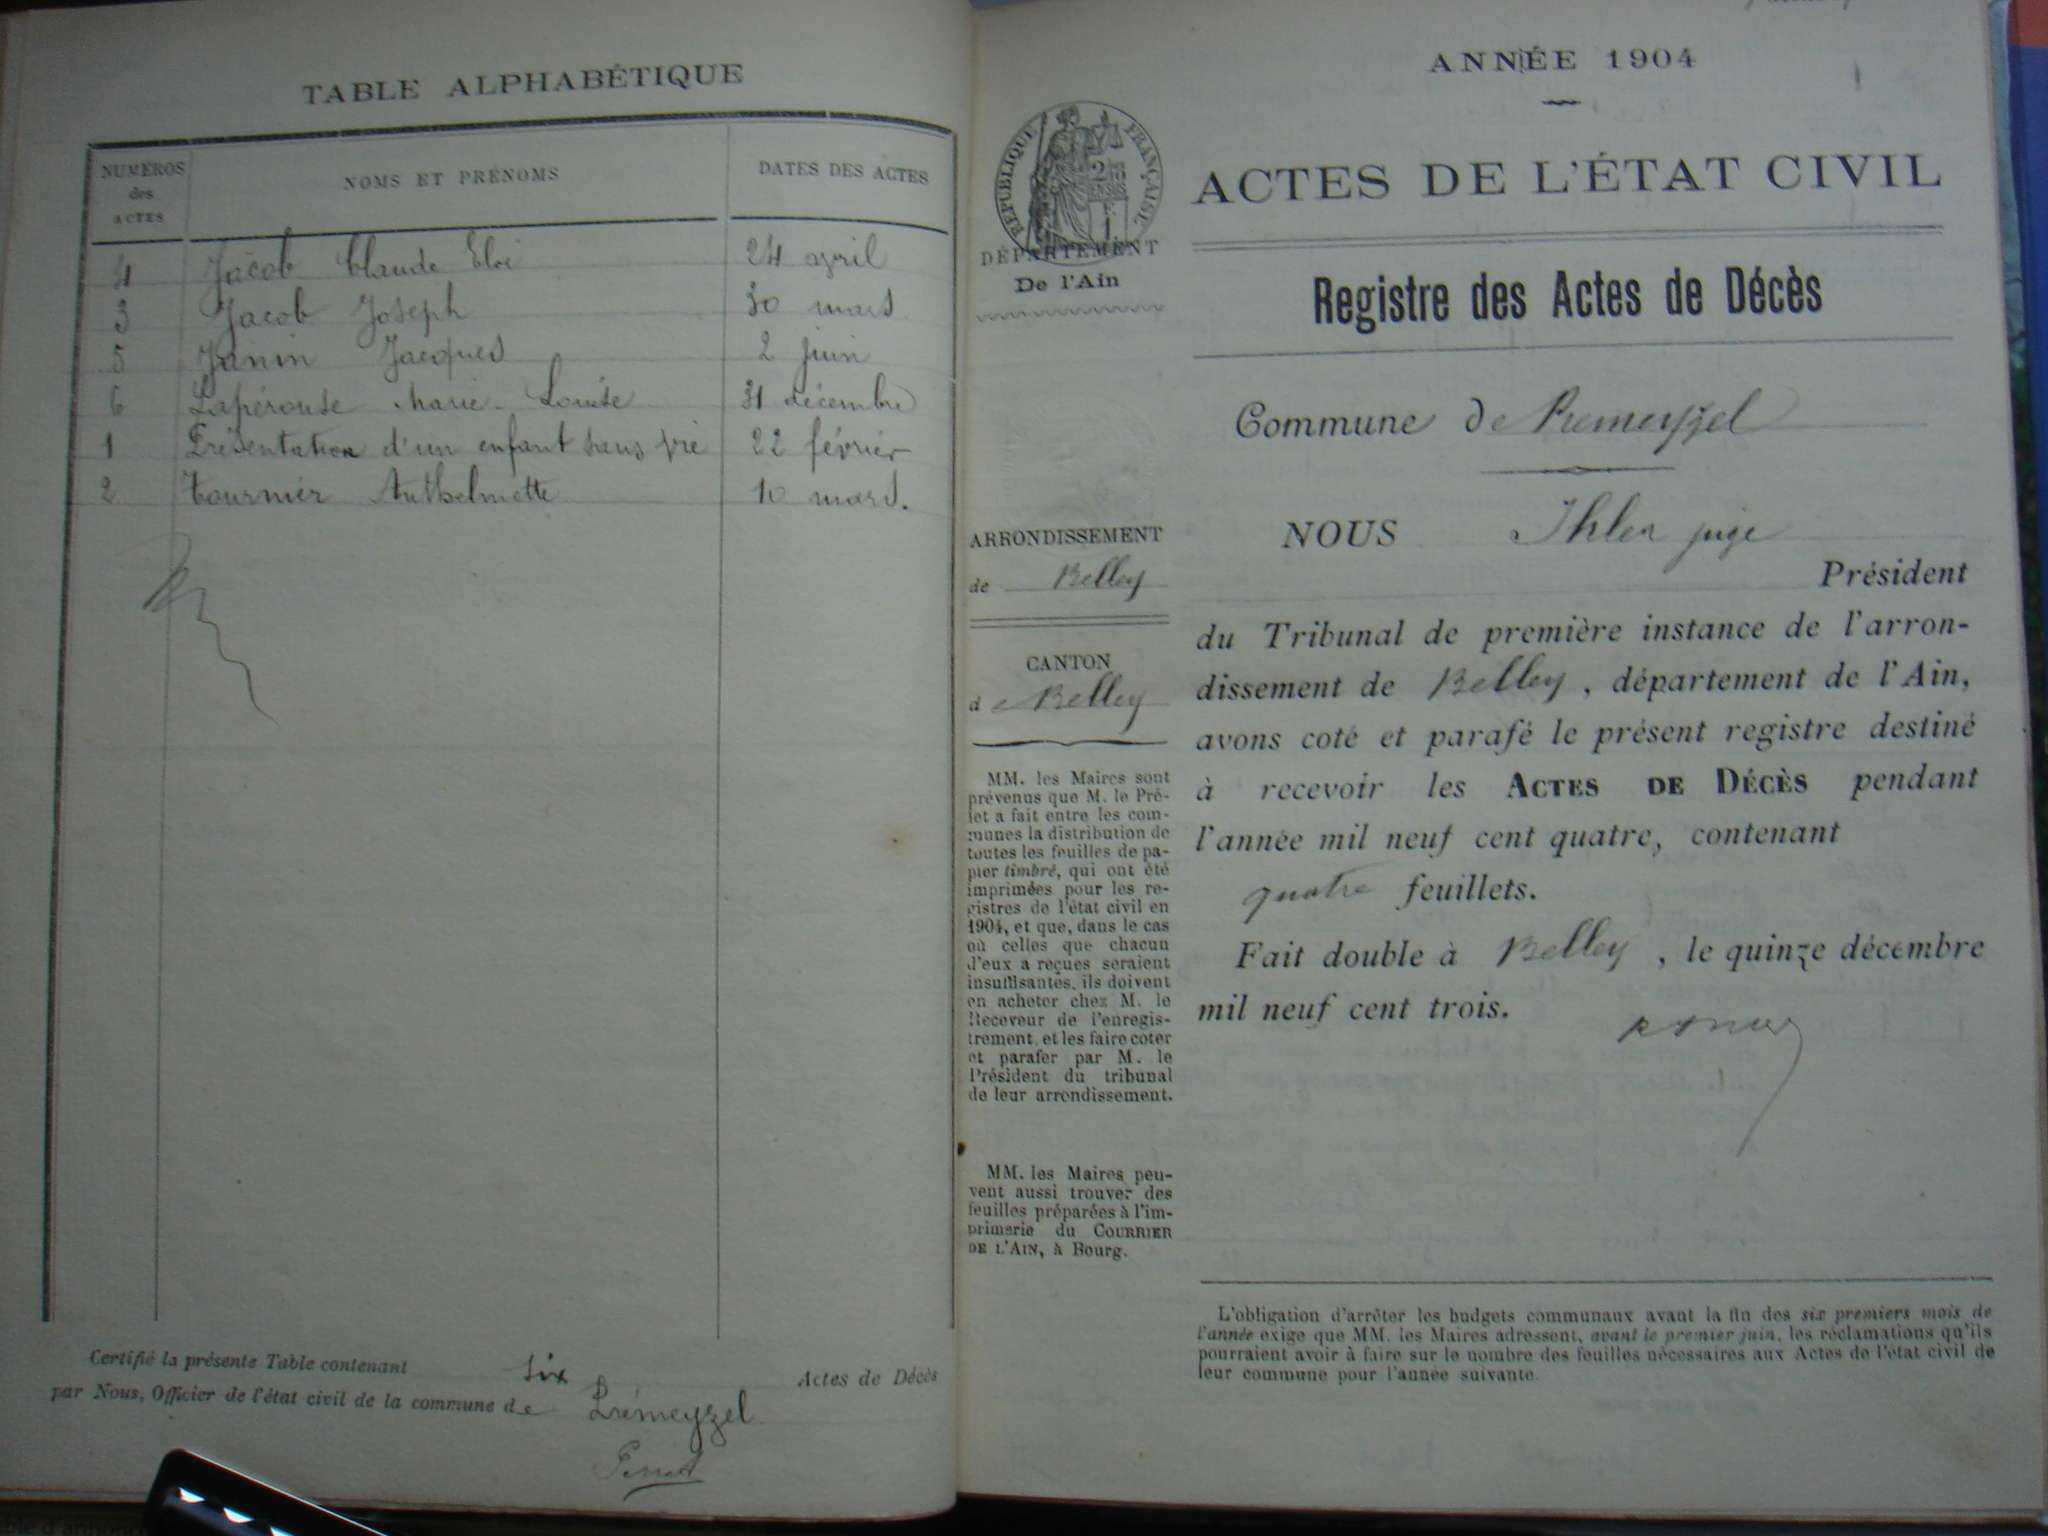 TABLE ALPHABÉTIQUE
NUMÉROS des ACTES
NOMS ET PRÉNOMS
DATES DES ACTES
4 Jacob Claude Eloi 24 avril
3 Jacob Joseph 30 mars
5 Janin Jacques 2 juin
6 Lapérouse Marie-Louise 31 décembre
1 Présentation d'un enfant sans vie 22 février
2 Tournier Anthelmette 10 mars.
Certifié la présente Table contenant six Actes de Décès
par Nous, Officier de l'état civil de la commune de Prémeyzel
ANNÉE 1904
RÉPUBLIQUE FRANÇAISE
DÉPARTEMENT
De l'Ain
ACTES DE L'ÉTAT CIVIL
Registre des Actes de Décès
Commune de Premeyzel
ARRONDISSEMENT
de Belley
CANTON
de Belley
MM. les Maires sont
prévenus que M. le Pré-
fet a fait entre les com-
munes la distribution de
toutes les feuilles de pa-
pier timbré, qui ont été
imprimées pour les re-
gistres de l'état civil en
1904, et que, dans le cas
où celles que chacun
d'eux a reçues seraient
insuffisantes, ils doivent
en acheter chez M. le
Receveur de l'enregis-
trement, et les faire coter
et parafer par M. le
Président du tribunal
de leur arrondissement.
MM. les Maires peu-
vent aussi trouver des
feuilles préparées à l'im-
primerie du COURRIER
DE L'AIN, à Bourg.
NOUS Ihler juge
Président
du Tribunal de première instance de l'arron-
dissement de Belley, département de l'Ain,
avons coté et parafé le présent registre destiné
à recevoir les ACTES DE DÉCÈS pendant
l'année mil neuf cent quatre, contenant
quatre feuillets.
Fait double à Belley, le quinze décembre
mil neuf cent trois.
L'obligation d'arrêter les budgets communaux avant la fin des six premiers mois de
l'année exige que MM. les Maires adressent, avant le premier juin, les réclamations qu'ils
pourraient avoir à faire sur le nombre des feuilles nécessaires aux Actes de l'état civil de
leur commune pour l'année suivante.